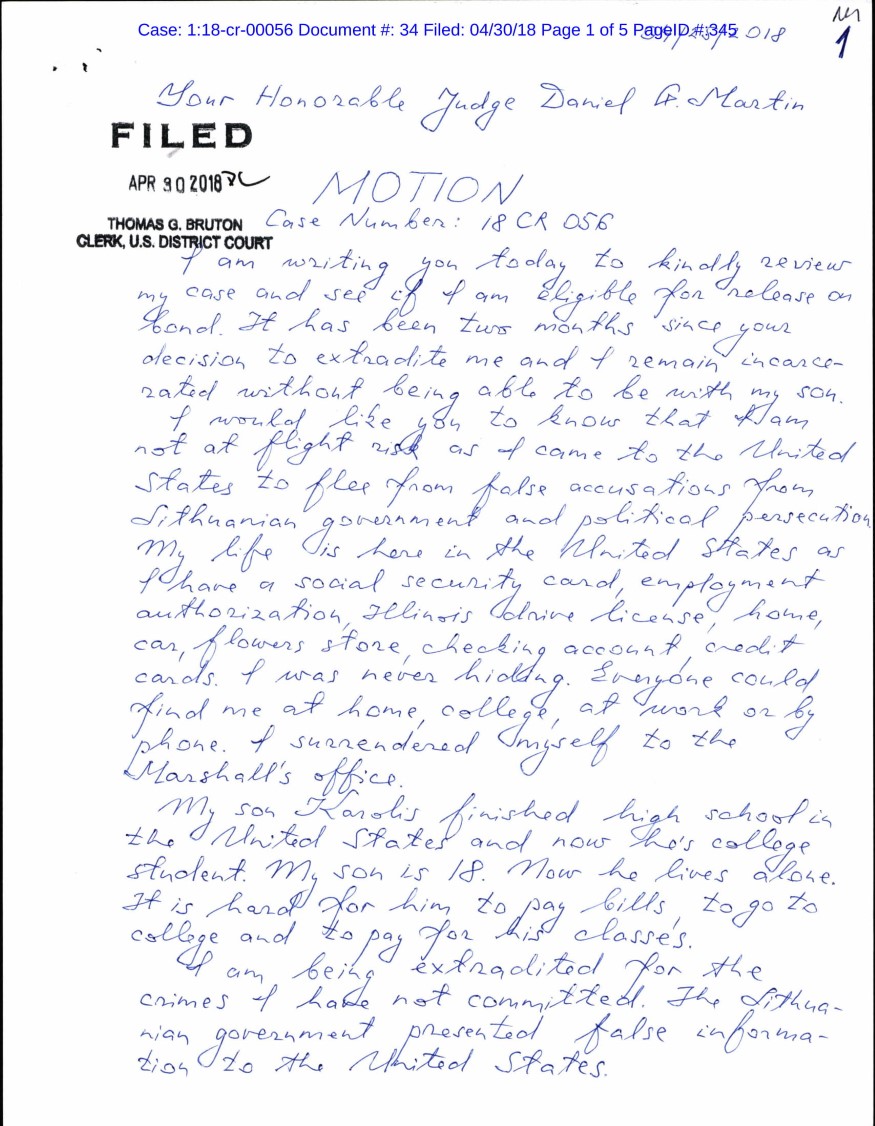 Case: 1:18-cr-00056 Document #: 34 Filed: 04/30/18 Page 1 of 5 PageID #:345
2018
1
Your Honorable Judge Daniel G. Martin
FILED
APR 30 2018
MOTION
THOMAS G. BRUTON
CLERK, U.S. DISTRICT COURT
Case Number: 18 CR 056
I am writing you today to kindly review
my case and see if I am eligible for release on
bond. It has been two months since your
decision to extradite me and I remain incarce-
rated without being able to be with my son.
I would like you to know that I am
not at flight risk as I came to the United
States to flee from false accusations from
Lithuanian government and political persecution
My life is here in the United States as
I have a social security card, employment
authorization, Illinois drive license, home,
car, flowers store, checking account, credit
cards. I was never hiding. Everyone could
find me at home, college, at work or by
phone. I surrendered myself to the
Marshall's office.
My son Karolis finished high school in
the United States and now he's college
student. My son is 18. Now he lives alone.
It is hard for him to pay bills, to go to
college and to pay for his classes.
I am being extradited for the
crimes I have not committed. The Lithua-
nian government presented false informa-
tion to the United States.